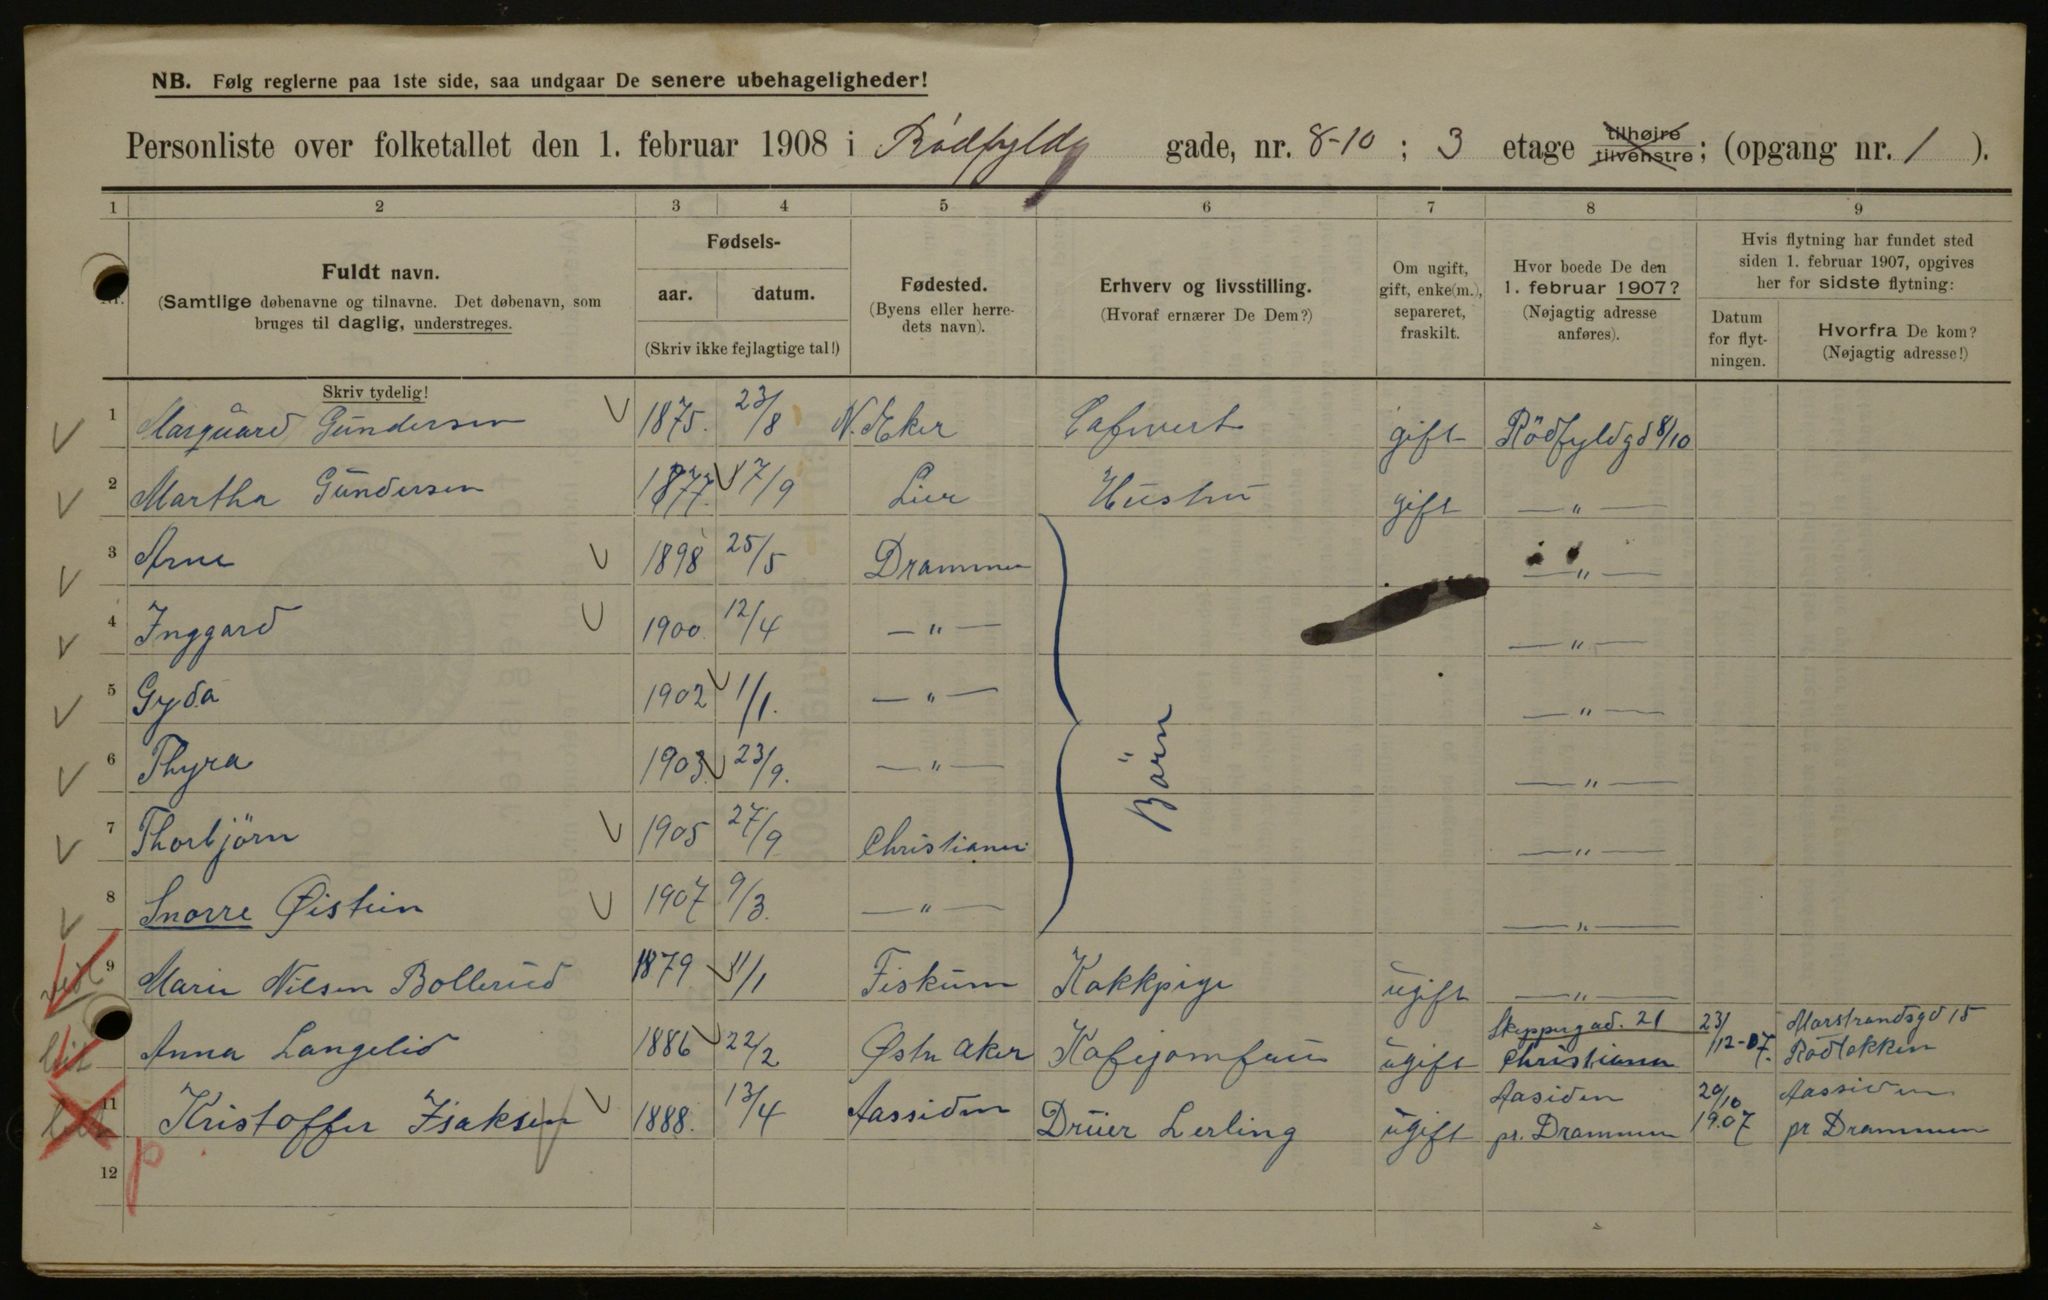 NB. Følg reglerne paa 1ste side, saa undgaar De senere ubehageligheder!
Personliste over folketallet den 1. februar 1908 i Rödfyldg gade, nr. 8-10 ; 3 etage tilhøire tilvenstre; (opgang nr. 1 ).
1 2 3 4 5 6 7 8 9
Fuldt navn.
(Samtlige døbenavne og tilnavne. Det døbenavn, som
bruges til daglig, understreges.
Skriv tydelig!
Fødsels-
aar. datum.
(Skriv ikke fejlagtige tal!)
Fødested.
(Byens eller herre-
dets navn).
Erhverv og livsstilling.
(Hvoraf ernærer De Dem?)
Om ugift,
gift, enke(m.),
separeret,
fraskilt.
Hvor boede De den
1. februar 1907?
(Nøjagtig adresse
anføres).
Hvis flytning har fundet sted
siden 1. februar 1907, opgives
her for sidste flytning:
Datum
for flyt-
ningen.
Hvorfra De kom?
(Nøjagtig adresse!)
1 Marquard Gundersen 1875. 23/8 N. Eker Cafevert gift Rödfyldgd 8/10
2 Martha Gundersen 1877. 17/9 Lier Hustru gift — " —
3 Arne 1898 25/5 Drammen — " —
4 Inggard 1900. 12/4 — " — — " —
5 Gyda 1902 1/1. — " — — " —
Börn
6 Thyra 1903. 23/9. — " — — " —
7 Thorbjörn 1905 27/9 Christiania — " —
8 Snorre Øistein 1907 9/3. — " — — " —
9 Marie Nilsen Bollerud 1879 11/1 Fiskum Kokkpige ugift — " —
10 Anna Langelid 1886 22/2 Østre Aker Kafejomfru ugift Skippergad. 21 Christiania 23/12-07. Marstrandsgd 15 Rodeløkken
11 Kristoffer Isaksen 1888. 13/4 Aassiden Drüer Lerling ugift Aasiden pr. Drammen 20/10 1907 Aassiden pr Drammen
12
p